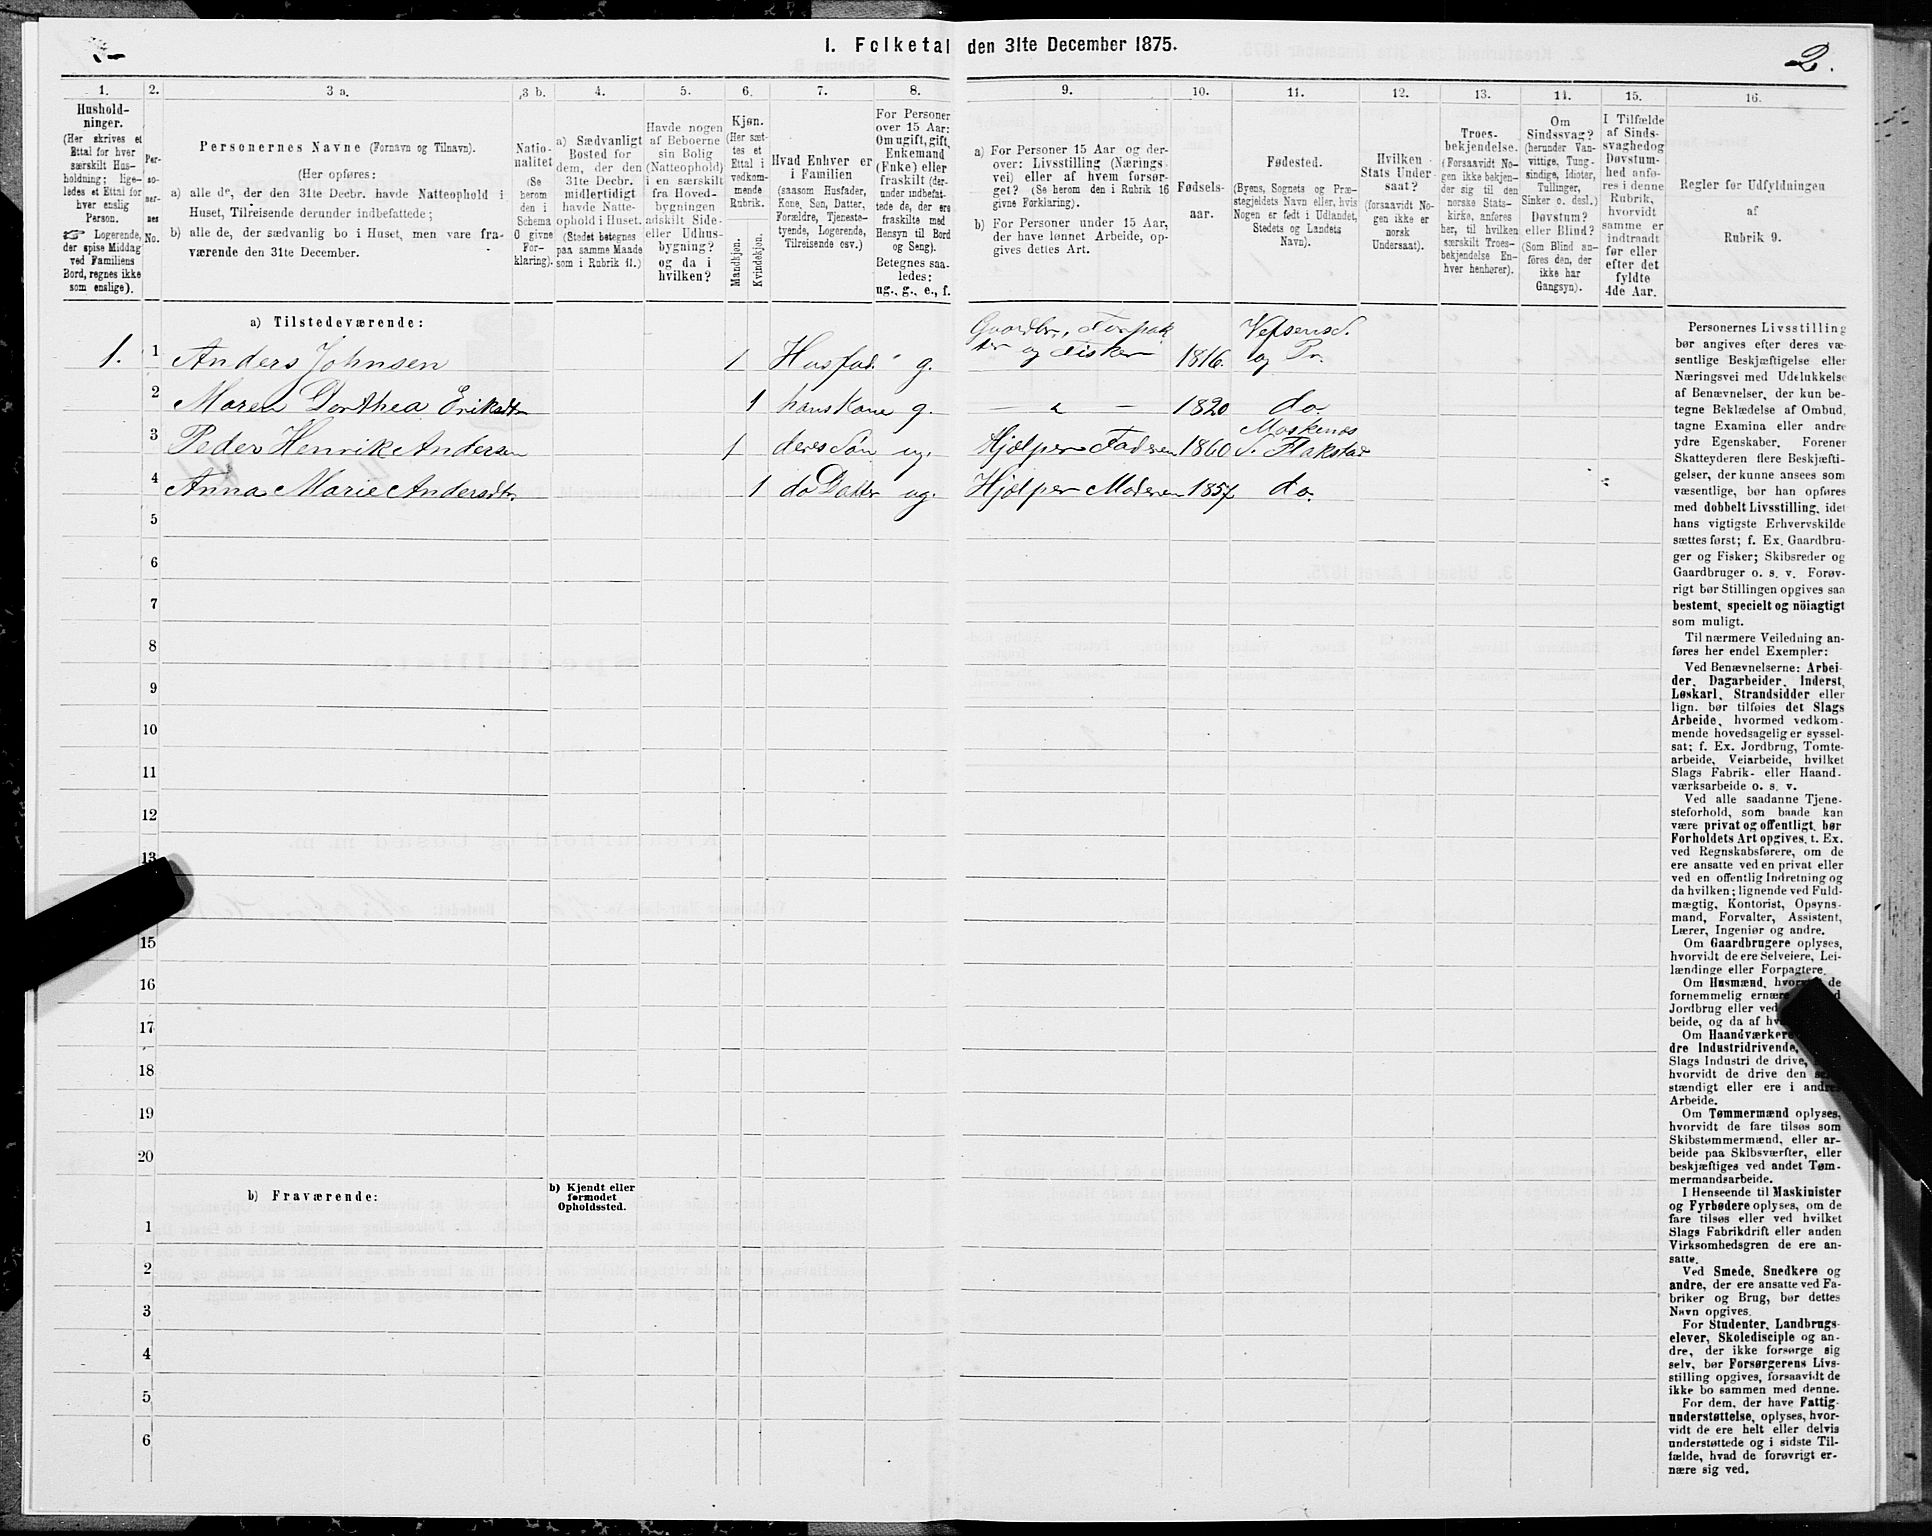 I. Folketal den 31te December 1875.
2.
1. 2. 3 a. 3 b. 4. 5. 6. 7. 8. 9. 10. 11. 12. 13. 14. 15. 16.
Hushold-
ninger.
(Her skrives et
Ettal for hver
særskilt Hus-
holdning; lige-
ledes et Ettal for
hver enslig
Person.
☞ Logerende,
der spise Middag
ved Familiens
Bord, regnes ikke
som enslige).
Per-
so-
ner-
nes
No.
Personernes Navne (Fornavn og Tilnavn).
(Her opføres:
a) alle de, der den 31te Decbr. havde Natteophold i
Huset, Tilreisende derunder indbefattede;
b) alle de, der sædvanlig bo i Huset, men vare fra-
værende den 31te December.
Natio-
nalitet
(Se
herom
den i
Schema
O givne
For-
klaring).
a) Sædvanligt
Bosted for
dem, der den
31te Decbr.
midlertidigt
havde Natte-
ophold i Huset.
(Stedet betegnes
paa samme Maade
som i Rubrik 11.)
Havde nogen
af Beboerne
sin Bolig
(Natteophold)
i en særskilt
fra Hoved-
bygningen
adskilt Side-
eller Udhus-
bygning?
og da i
hvilken?
Kjøn.
(Her sæt-
tes et
Ettal i
vedkom-
mende
Rubrik.
Mandkjøn.
Kvindekjøn.
Hvad Enhver er
i Familien
(saasom Husfader,
Kone, Søn, Datter,
Forældre, Tjeneste-
tyende, Logerende,
Tilreisende osv.)
For Personer
over 15 Aar:
Om ugift, gift,
Enkemand
(Enke) eller
fraskilt (der-
under indbefat-
tede de, der ere
fraskilte med
Hensyn til Bord
og Seng).
Betegnes saa-
ledes:
ug., g., e., f.
a) For Personer 15 Aar og der-
over: Livsstilling (Nærings-
vei) eller af hvem forsør-
get? (Se herom den i Rubrik 16
givne Forklaring).
b) For Personer under 15 Aar,
der have lønnet Arbeide, op-
gives dettes Art.
Fødsels-
aar.
Fødested.
(Byens, Sognets og Præ-
stegjeldets Navn eller, hvis
Nogen er født i Udlandet,
Stedets og Landets
Navn).
Hvilken
Stats Under-
saat?
(forsaavidt No-
gen ikke er
norsk
Undersaat).
Troes-
bekjendelse.
(Forsaavidt No-
gen ikke bekjen-
der sig til den
norske Stats-
kirke, anføres
her, til hvilken
særskilt Troes-
bekjendelse En-
hver henhører).
Om
Sindssvag?
(herunder Van-
vittige, Tung-
sindige, Idioter,
Tullinger,
Sinker o. desl.)
Døvstum?
eller Blind?
(Som Blind an-
føres den, der
ikke har
Gangsyn).
I Tilfælde
af Sinds-
svaghed og
Døvstum-
hed anfø-
res i denne
Rubrik,
hvorvidt
samme er
indtraadt
før eller
efter det
fyldte
4de Aar.
Regler for Udfyldningen
af
Rubrik 9.
a) Tilstedeværende:
1. 1 Anders Johnsen 1 Husfad. g. Gaardbr., Forpak
ter og Fisker 1816. Vefsens S.
og Pr.
2 Maren Dorthea Eriksdtr 1 hans Kone g. — " — 1820 do.
3 Peder Henrik Andersen 1 deres Søn ug. Hjælper Faderen 1860 Moskenæs
S. Flakstad
4 Anna Marie Andersdtr. 1 do Datter ug. Hjælper Moderen 1857 do.
5
6
7
8
9
10
11
12
13
15
16
17
18
19
20
b) Fraværende:
b) Kjendt eller
formodet
Opholdssted.
1
2
3
4
5
6
Personernes Livsstilling
bør angives efter deres væ-
sentlige Beskjæftigelse eller
Næringsvei med Udelukkelse
af Benævnelser, der kun be-
tegne Beklædelse af Ombud,
tagne Examina eller andre
ydre Egenskaber. Forener
Skatteyderen flere Beskjæfti-
gelser, der kunne ansees som
væsentlige, bør han opføres
med dobbelt Livsstilling, idet
hans vigtigste Erhvervskilde
sættes først; f. Ex. Gaardbru-
ger og Fisker; Skibsreder og
Gaardbruger o. s. v. Forøv-
rigt bør Stillingen opgives saa
bestemt, specielt og nöiagtigt
som muligt.
Til nærmere Veiledning an-
føres her endel Exempler:
Ved Benævnelserne: Arbei-
der, Dagarbeider, Inderst,
Løskarl, Strandsidder eller
lign. bør tilføies det Slags
Arbeide, hvormed vedkom-
mende hovedsagelig er syssel-
sat; f. Ex. Jordbrug, Tomte-
arbeide, Veiarbeide, hvilket
Slags Fabrik- eller Haand-
værksarbeide o. s. v.
Ved alle saadanne Tjene-
steforhold, som baade kan
være privat og offentligt, bør
Forholdets Art opgives, t. Ex.
ved Regnskabsførere, om de
ere ansatte ved en privat eller
ved en offentlig Indretning og
da hvilken; lignende ved Fuld-
mægtig, Kontorist, Opsyns-
mand, Forvalter, Assistent,
Lærer, Ingeniør og andre.
Om Gaardbrugere oplyses,
hvorvidt de ere Selveiere, Lei-
lændinge eller Forpagtere.
Om Husmænd, de
fornemmelig ernære
Jordbrug eller ved
beide, og da af
Om Haandværkere
dre Industridrivende,
Slags Industri de drive,
hvorvidt de drive den
stændigt eller ere i andres
Arbeide.
Om Tømmermænd oplyses,
hvorvidt de fare tilsøs som
Skibstømmermænd, eller ar-
beide paa Skibsværfter, eller
beskjæftiges ved andet Tøm-
mermandsarbeide.
I Henseende til Maskinister
og Fyrbødere oplyses, om de
fare tilsøs eller ved hvilket
Slags Fabrikdrift eller anden
Virksomhedsgren de ere an-
satte.
Ved Smede, Snedkere og
andre, der ere ansatte ved Fa-
briker og Brug, bør dettes
Navn opgives.
For Studenter, Landbrugs-
elever, Skoledisciple og an-
dre, der ikke forsørge sig
selv, bør Forsørgerens Livs-
stilling opgives, forsaavidt de
ikke bo sammen med denne.
For dem, der have Fattig-
understøttelse, oplyses, hvor-
vidt de ere helt eller delvis
understøttede og i sidste Til-
fælde, hvad de forøvrigt er-
nære sig ved.